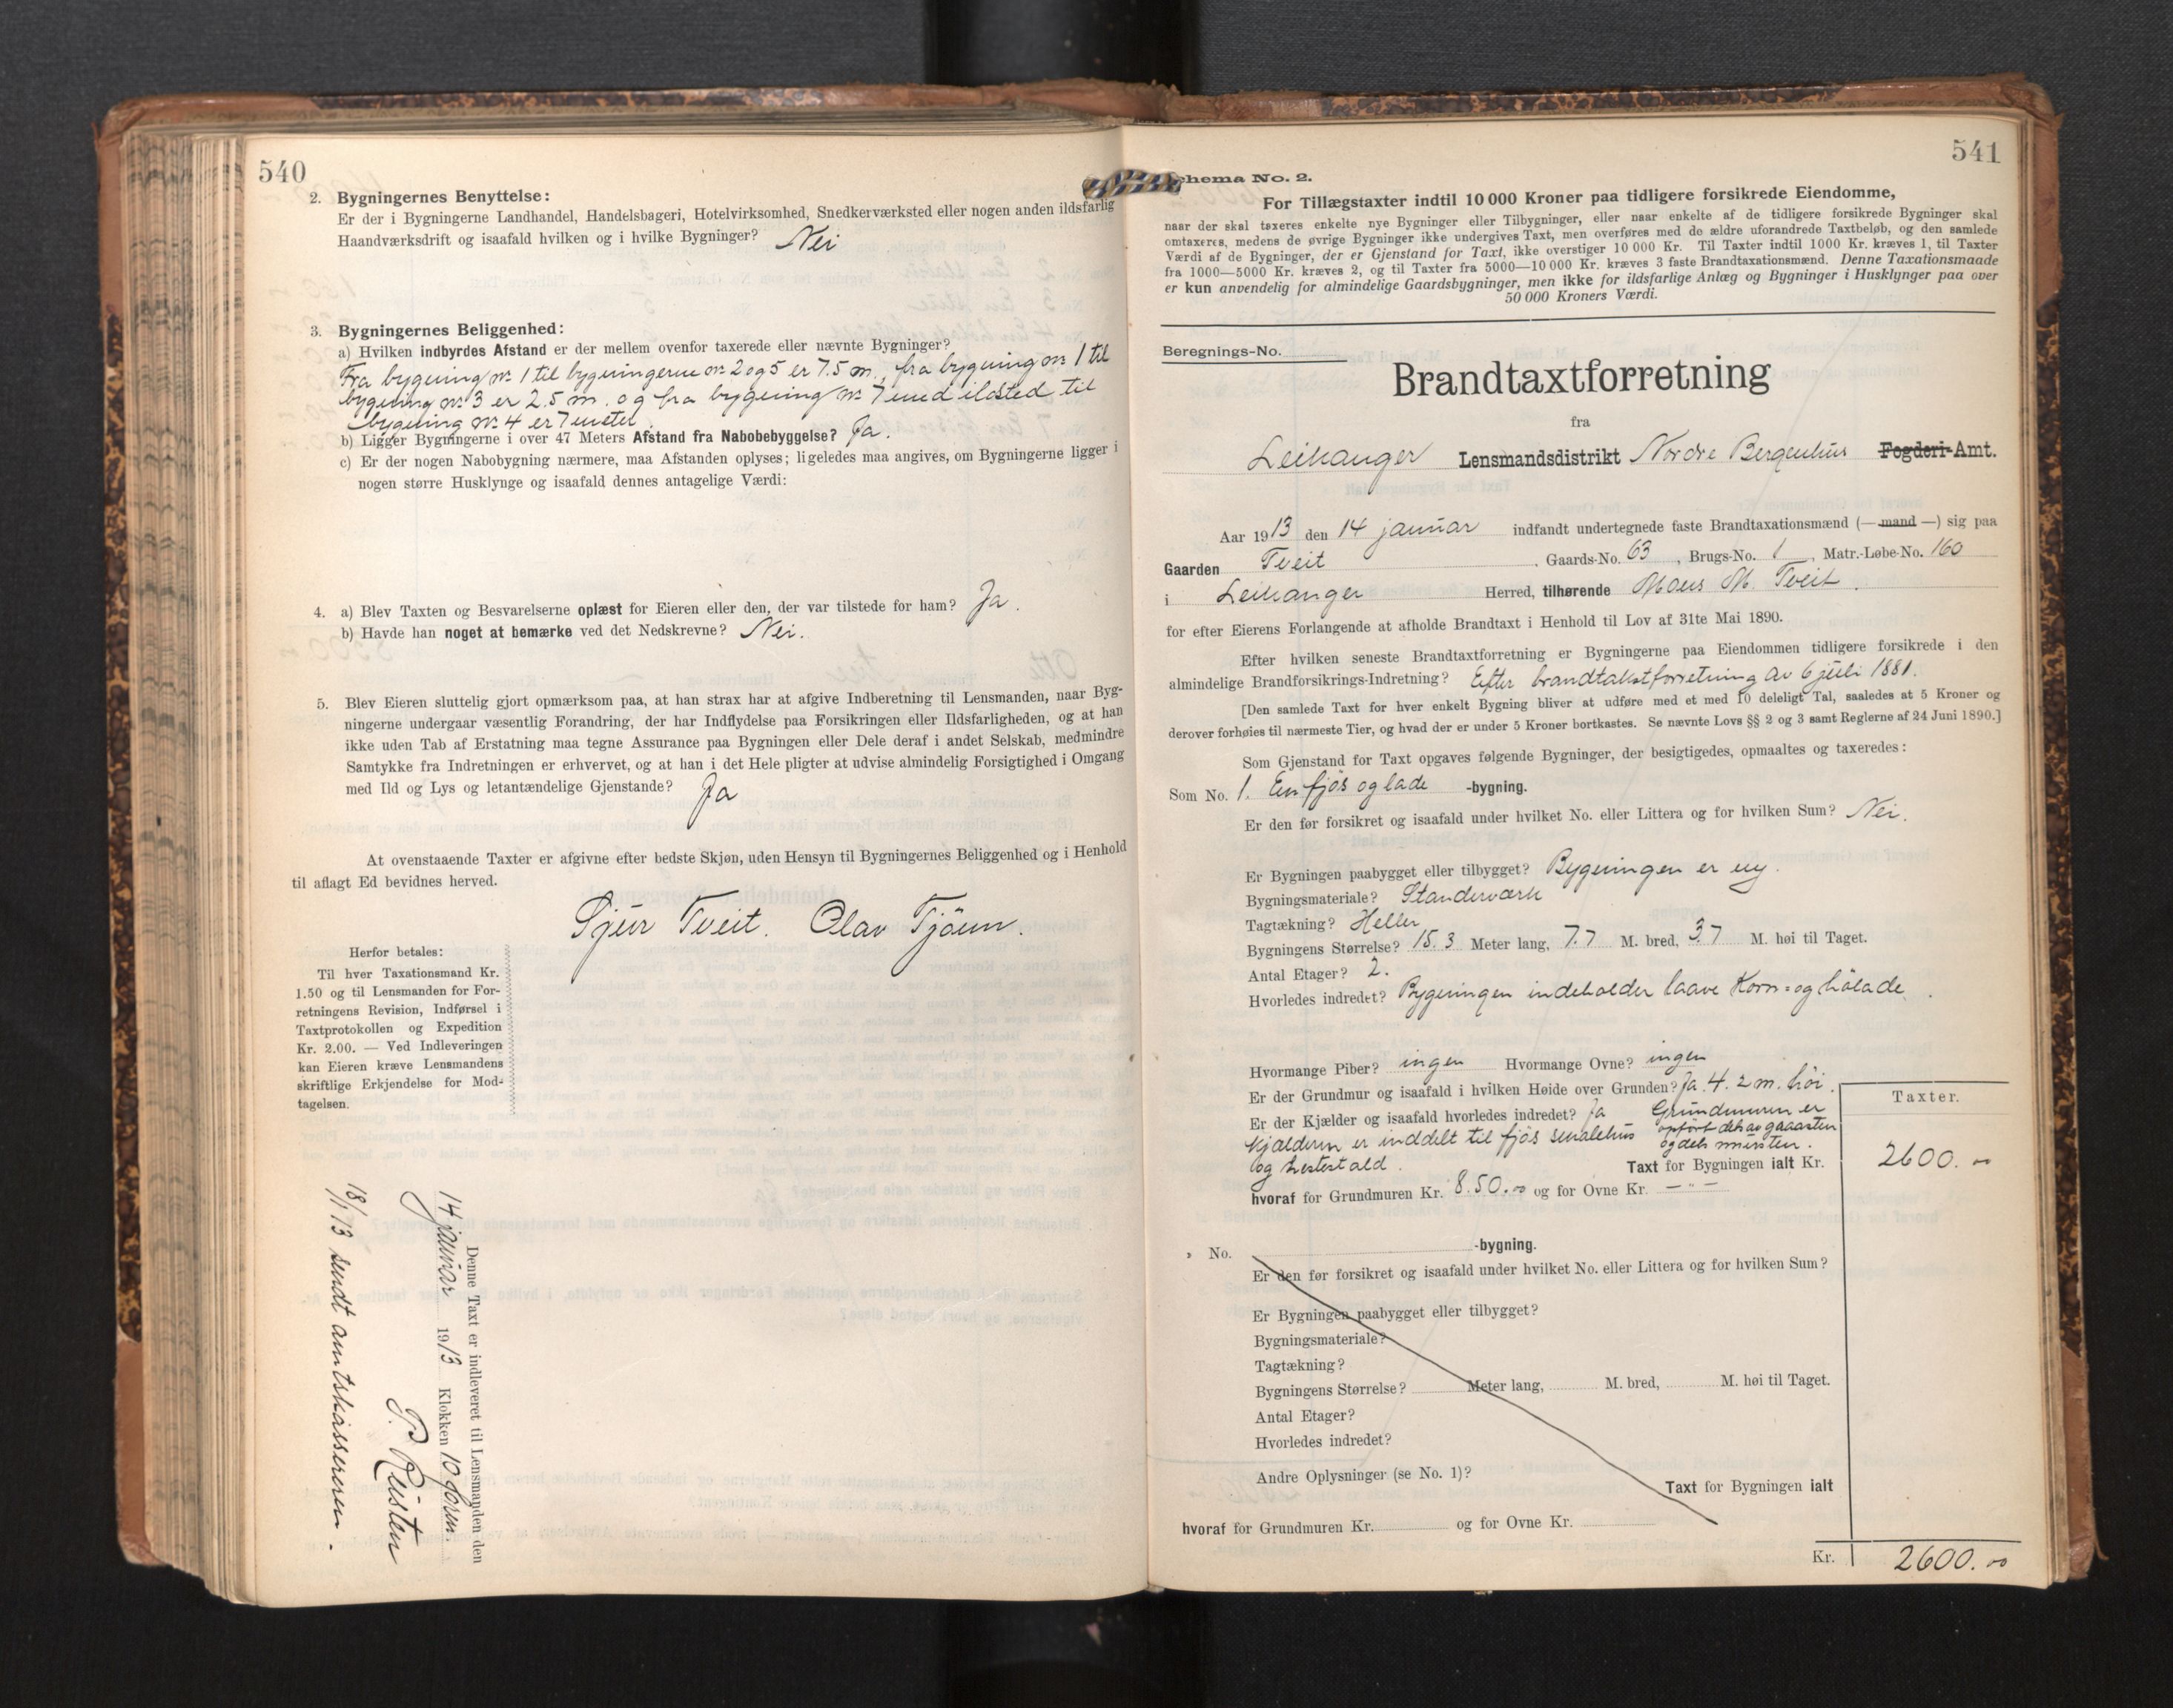 540
2. Bygningernes Benyttelse:
Er der i Bygningerne Landhandel, Handelsbageri, Hotelvirksomhed, Snedkerværksted eller nogen anden ildsfarlig
Haandværksdrift og isaafald hvilken og i hvilke Bygninger? Nei
3. Bygningernes Beliggenhed:
a) Hvilken indbyrdes Afstand er der mellem ovenfor taxerede eller nævnte Bygninger?
Fra bygning nr. 1 til bygningerne nr. 2 og 5 er 7.5 m., fra bygning nr. 1 til
bygning nr. 3 er 2.5 m. og fra bygning nr. 7 med ildsted til
bygning nr. 4 er 7 meter.
b) Ligger Bygningerne i over 47 Meters Afstand fra Nabobebyggelse? Ja.
c) Er der nogen Nabobygning nærmere, maa Afstanden oplyses; ligeledes maa angives, om Bygningerne ligger i
nogen større Husklynge og isaafald dennes antagelige Værdi:
4. a) Blev Taxten og Besvarelserne oplæst for Eieren eller den, der var tilstede for ham? Ja.
b) Havde han noget at bemærke ved det Nedskrevne? Nei.
5. Blev Eieren sluttelig gjort opmærksom paa, at han strax har at afgive Indberetning til Lensmanden, naar Byg-
ningerne undergaar væsentlig Forandring, der har Indflydelse paa Forsikringen eller Ildsfarligheden, og at han
ikke uden Tab af Erstatning maa tegne Assurance paa Bygningen eller Dele deraf i andet Selskab, medmindre
Samtykke fra Indretningen er erhvervet, og at han i det Hele pligter at udvise almindelig Forsigtighed i Omgang
med Ild og Lys og letantændelige Gjenstande? Ja
At ovenstaaende Taxter er afgivne efter bedste Skjøn, uden Hensyn til Bygningernes Beliggenhed og i Henhold
til aflagt Ed bevidnes herved.
Sjur Tveit. Olav Tjöun.
Herfor betales:
Til hver Taxationsmand Kr.
1.50 og til Lensmanden for For-
retningens Revision, Indførsel i
Taxtprotokollen og Expedition
Kr. 2.00. — Ved Indleveringen
kan Eieren kræve Lensmandens
skriftlige Erkjendelse for Mod-
tagelsen.
Denne Taxt er indleveret til Lensmanden den
14 januar 1913 Klokken 10 form.
P. Reisten
18/1 13 sendt amtskassereren.
541
Schema No. 2.
For Tillægstaxter indtil 10 000 Kroner paa tidligere forsikrede Eiendomme,
naar der skal taxeres enkelte nye Bygninger eller Tilbygninger, eller naar enkelte af de tidligere forsikrede Bygninger skal
omtaxeres, medens de øvrige Bygninger ikke undergives Taxt, men overføres med de ældre uforandrede Taxtbeløb, og den samlede
Værdi af de Bygninger, der er Gjenstand for Taxt, ikke overstiger 10 000 Kr. Til Taxter indtil 1000 Kr. kræves 1, til Taxter
fra 1000—5000 Kr. kræves 2, og til Taxter fra 5000—10 000 Kr. kræves 3 faste Brandtaxationsmænd. Denne Taxationsmaade
er kun anvendelig for almindelige Gaardsbygninger, men ikke for ildsfarlige Anlæg og Bygninger i Husklynger paa over
50 000 Kroners Værdi.
Beregnings-No.
Brandtaxtforretning
fra
Leikanger Lensmandsdistrikt Nordre Bergenhus Fogderi-Amt.
Aar 1913 den 14 januar indfandt undertegnede faste Brandtaxationsmænd (— mand —) sig paa
Gaarden Tveit, Gaards-No. 63, Brugs-No. 1, Matr.-Løbe-No. 160
i Leikanger Herred, tilhørende Mons M. Tveit.
for efter Eierens Forlangende at afholde Brandtaxt i Henhold til Lov af 31te Mai 1890.
Efter hvilken seneste Brandtaxtforretning er Bygningerne paa Eiendommen tidligere forsikrede i den
almindelige Brandforsikrings-Indretning? Efter brandtakstforretning av 6 juli 1881.
[Den samlede Taxt for hver enkelt Bygning bliver at udføre med et med 10 deleligt Tal, saaledes at 5 Kroner og
derover forhøies til nærmeste Tier, og hvad der er under 5 Kroner bortkastes. Se nævnte Lovs §§ 2 og 3 samt Reglerne af 24 Juni 1890.]
Som Gjenstand for Taxt opgaves følgende Bygninger, der besigtigedes, opmaaltes og taxeredes:
Som No. 1. En fjös og lade -bygning.
Er den før forsikret og isaafald under hvilket No. eller Littera og for hvilken Sum? Nei.
Er Bygningen paabygget eller tilbygget? Bygningen er ny.
Bygningsmateriale? Standerværk
Tagtækning? Heller
Bygningens Størrelse? 15.3 Meter lang, 7.7 M. bred, 3.7 M. høi til Taget.
Antal Etager? 2.
Hvorledes indredet? Bygningen indeholder laave Korn= og hölade.
Hvormange Piber? ingen Hvormange Ovne? ingen
Er der Grundmur og isaafald i hvilken Høide over Grunden? Ja. 4.2 m. höi.
Er der Kjælder og isaafald hvorledes indredet? Ja Grundmuren er
Kjælderen er inddelt til fjös smalehus opført dels av graasten
og hestestald. og dels mursten.
Taxter.
Taxt for Bygningen ialt Kr. 2600.00
hvoraf for Grundmuren Kr. 8.50.00 og for Ovne Kr. — " —
" No. -bygning.
Er den før forsikret og isaafald under hvilket No. eller Littera og for hvilken Sum?
Er Bygningen paabygget eller tilbygget?
Bygningsmateriale?
Tagtækning?
Bygningens Størrelse? Meter lang, M. bred, M. høi til Taget.
Antal Etager?
Hvorledes indredet?
Andre Oplysninger (se No. 1)?
Taxt for Bygningen ialt
hvoraf for Grundmuren Kr. og for Ovne Kr.
Kr. 2600.00